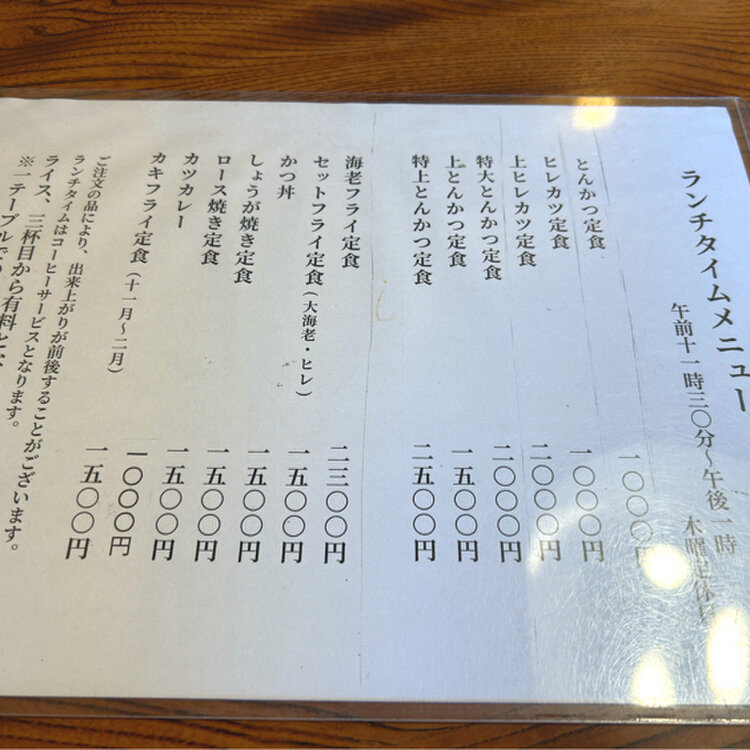 ランチタイムメニュー
午前十一時三〇分～午後一時
木曜定休日
とんかつ定食 一〇〇〇円
ヒレカツ定食 一〇〇〇円
上ヒレカツ定食 二〇〇〇円
特大とんかつ定食 二〇〇〇円
上とんかつ定食 一五〇〇円
特上とんかつ定食 二五〇〇円
海老フライ定食 二三〇〇円
セットフライ定食(大海老・ヒレ) 一五〇〇円
かつ丼 一五〇〇円
しょうが焼き定食 一五〇〇円
ロース焼き定食 一五〇〇円
カツカレー 一〇〇〇円
カキフライ定食(十一月～二月) 一五〇〇円
ご注文の品により、出来上がりが前後することがございます。
ランチタイムはコーヒーサービスとなります。
ライス、三杯目から有料と
※一テーブルで